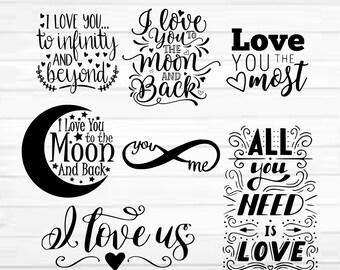 I LOVE YOU...
to infinity
AND
beyond
I love
You
TO THE
Moon
AND
Back
Love
YOU THE
most
I Love You
to the
Moon
And Back
you
me
I love us
ALL
you
NEED
is
LOVE